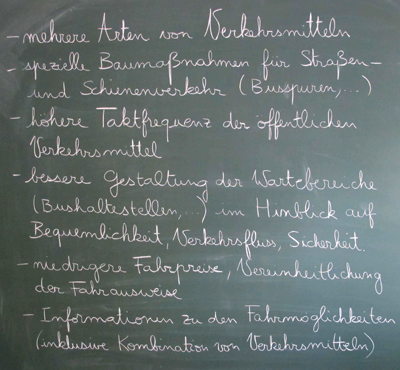 - mehrere Arten von Verkehrsmitteln
- spezielle Baumaßnahmen für Straßen-
und Schienenverkehr (Busspuren,...)
- höhere Taktfrequenz der öffentlichen
Verkehrsmittel
- bessere Gestaltung der Wartebereiche
(Bushaltestellen,...) im Hinblick auf
Bequemlichkeit, Verkehrsfluss, Sicherheit.
- niedrigere Fahrpreise, Vereinheitlichung
der Fahrausweise
- Informationen zu den Fahrmöglichkeiten
(inklusive Kombination von Verkehrsmitteln)